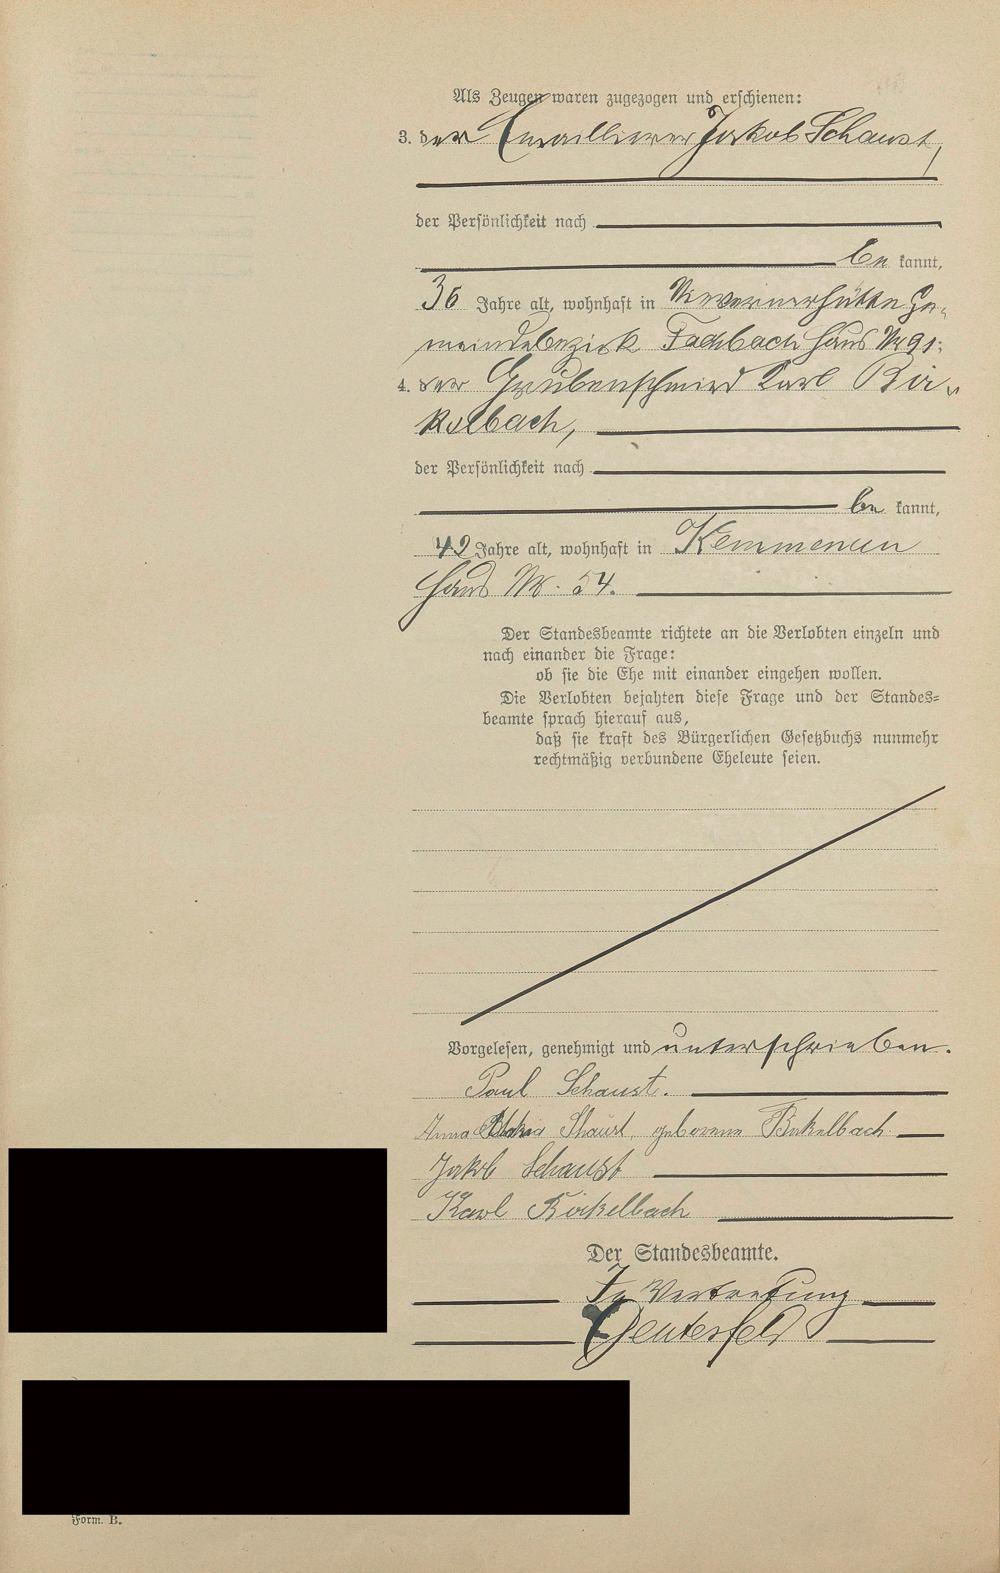 Als Zeugen waren zugezogen und erschienen:
3. der Emaillierer Jakob Schaust,
der Persönlichkeit nach
be kannt,
36 Jahre alt, wohnhaft in Nievernerhütte Ge-
meindebezirk Fachbach Haus Nr 91;
4. der Grubenschmied Karl Bir-
kelbach,
der Persönlichkeit nach
be kannt,
42 Jahre alt, wohnhaft in Kemmenau
Haus Nr. 54.
Der Standesbeamte richtete an die Verlobten einzeln und
nach einander die Frage:
ob sie die Ehe mit einander eingehen wollen.
Die Verlobten bejahten diese Frage und der Standes-
beamte sprach hierauf aus,
daß sie kraft des Bürgerlichen Gesetzbuchs nunmehr
rechtmäßig verbundene Eheleute seien.
Vorgelesen, genehmigt und unterschrieben.
Paul Schaust.
Anna Maria Schaust, geborene Birkelbach
Jakob Schaust
Karl Birkelbach
Der Standesbeamte.
In Vertretung
Form. B.